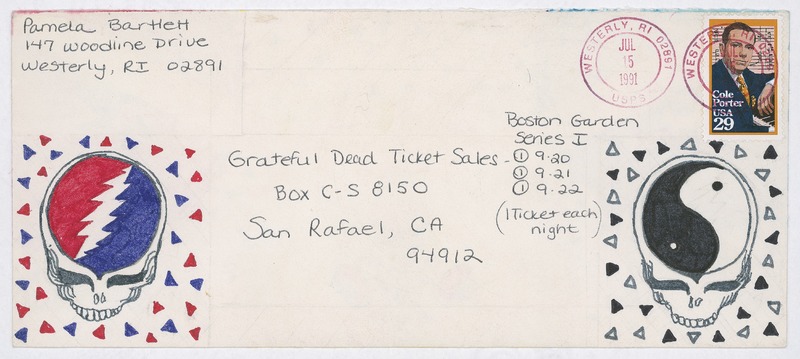 Pamela Bartlett
147 Woodline Drive
Westerly, RI 02891
WESTERLY, RI 02891
JUL
15
1991
USPS
WESTERLY, RI 02891
Cole
Porter
USA
29
Boston Garden
Series I
① 9.20
① 9.21
① 9.22
(1 Ticket each
night)
Grateful Dead Ticket Sales -
Box C-S 8150
San Rafael, CA
94912